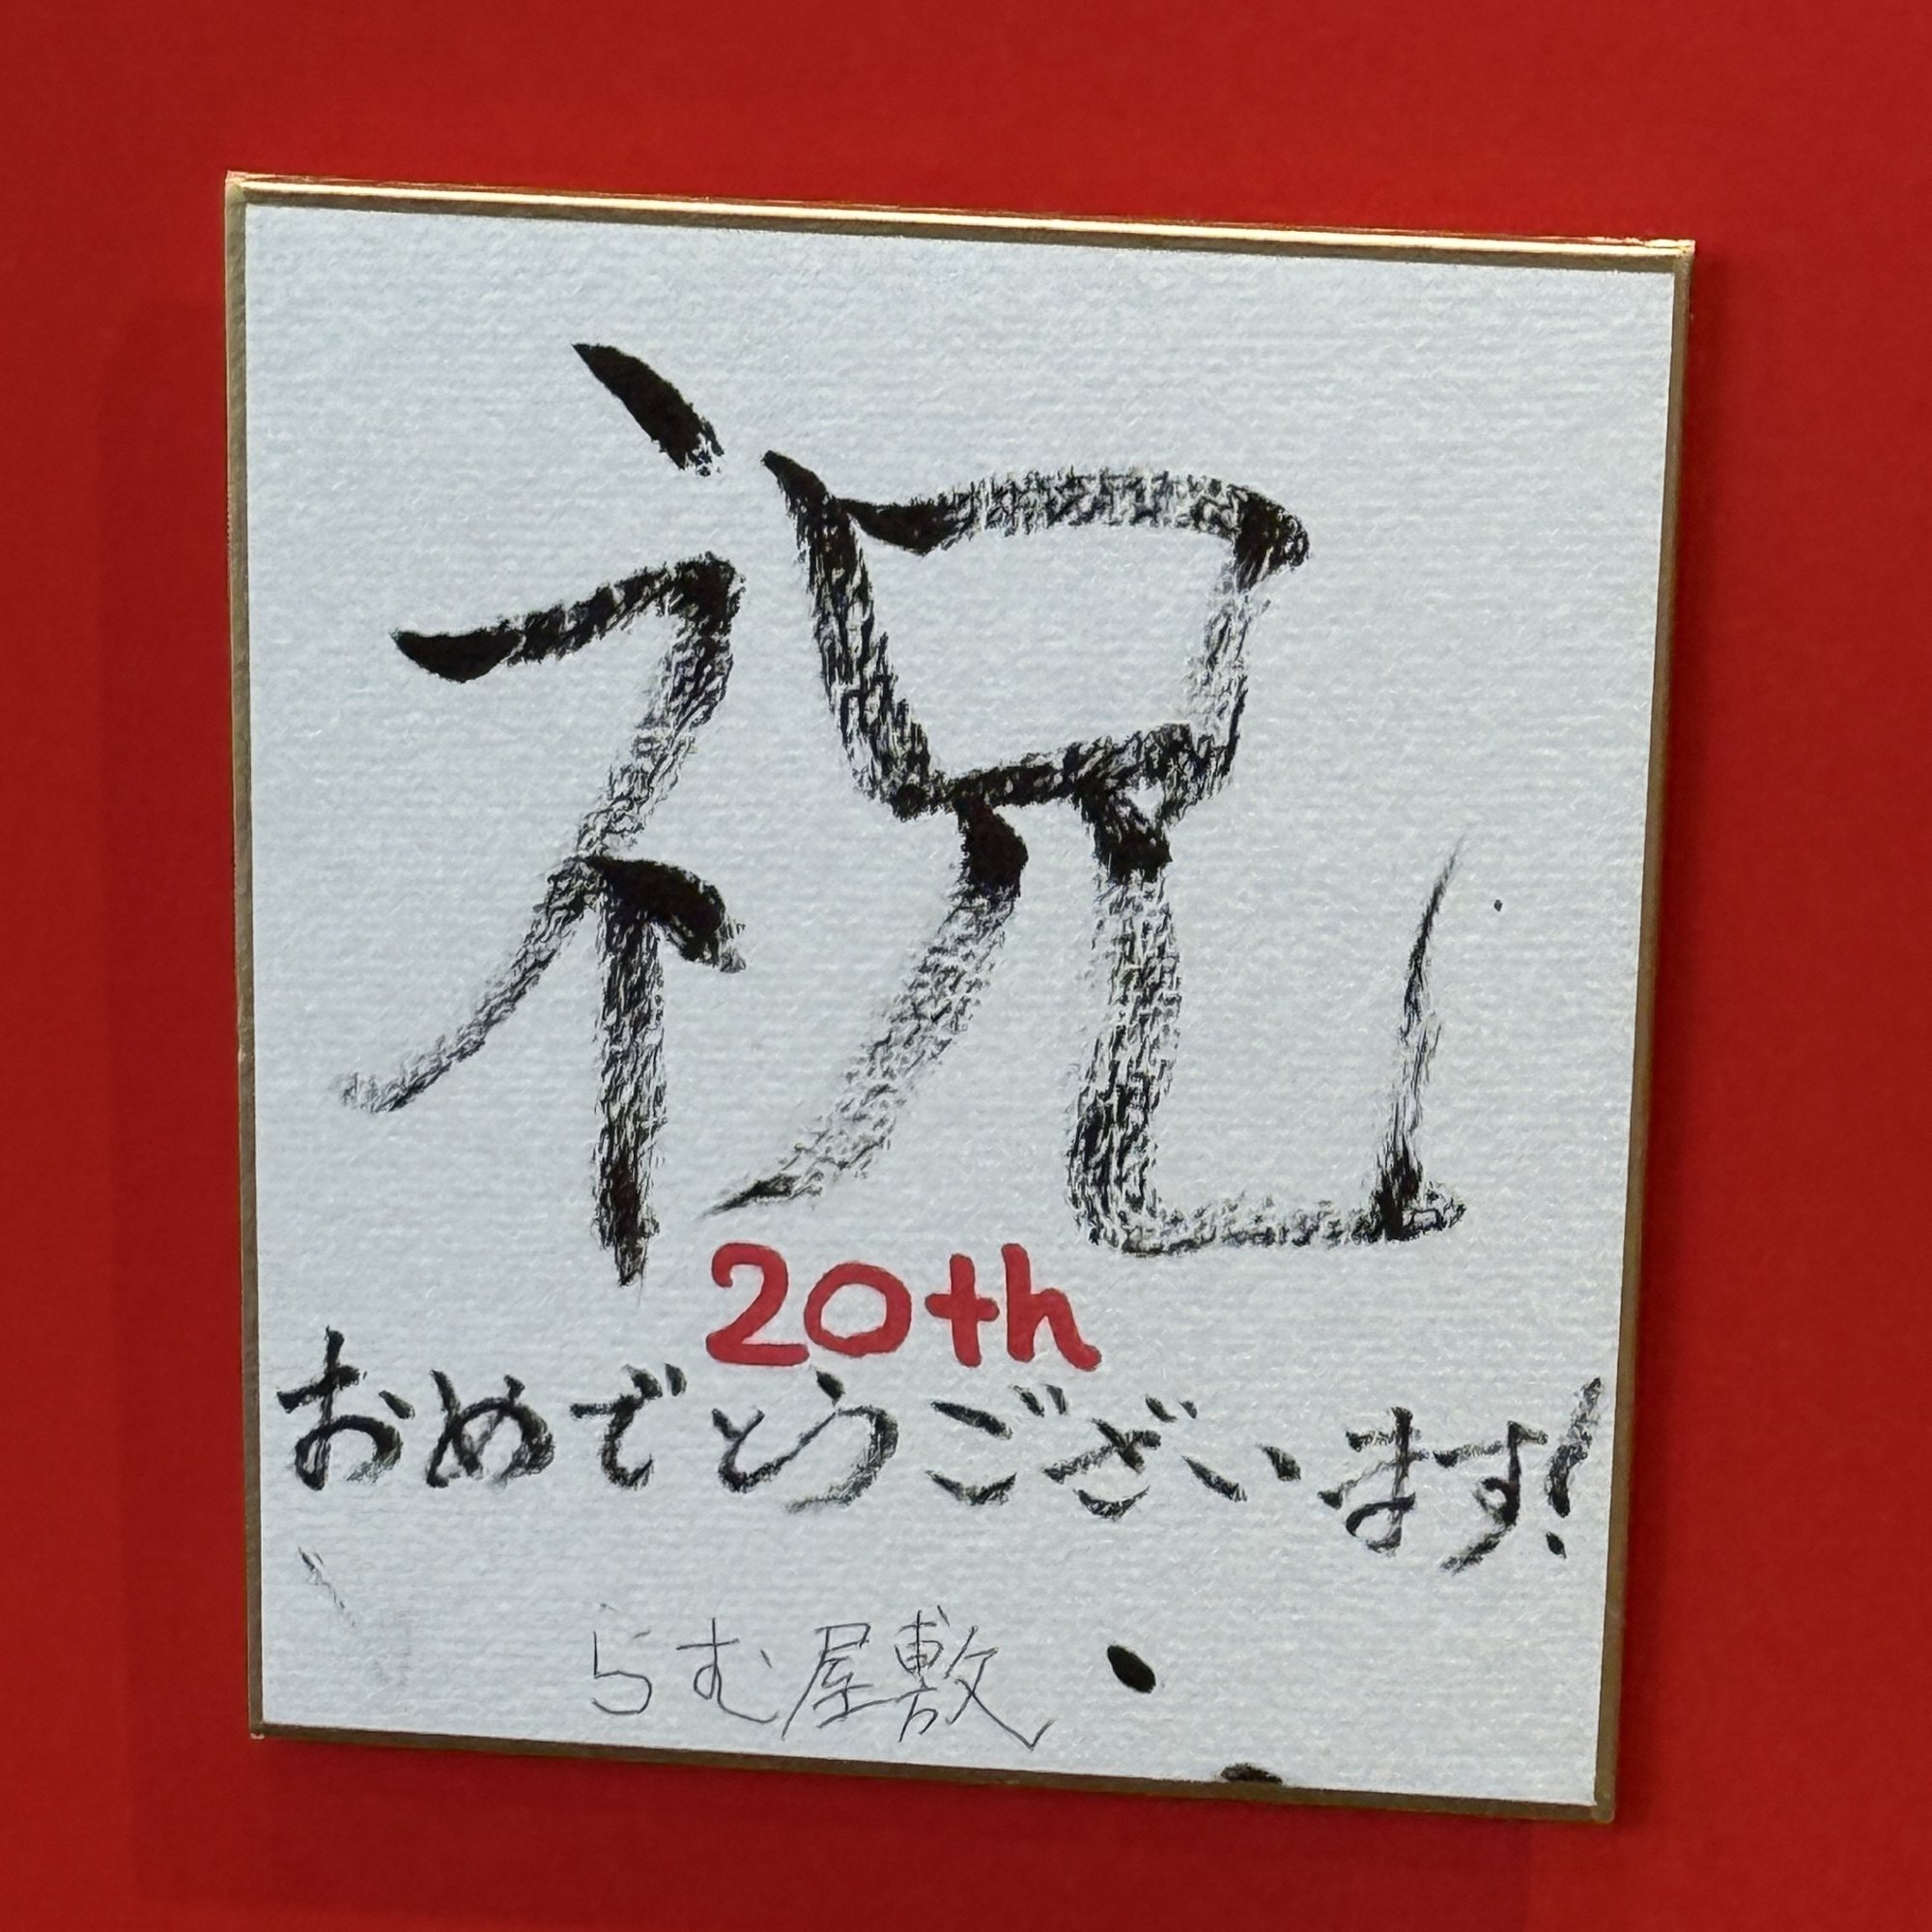 祝
20th
おめでとうございます!
らむ屋敷